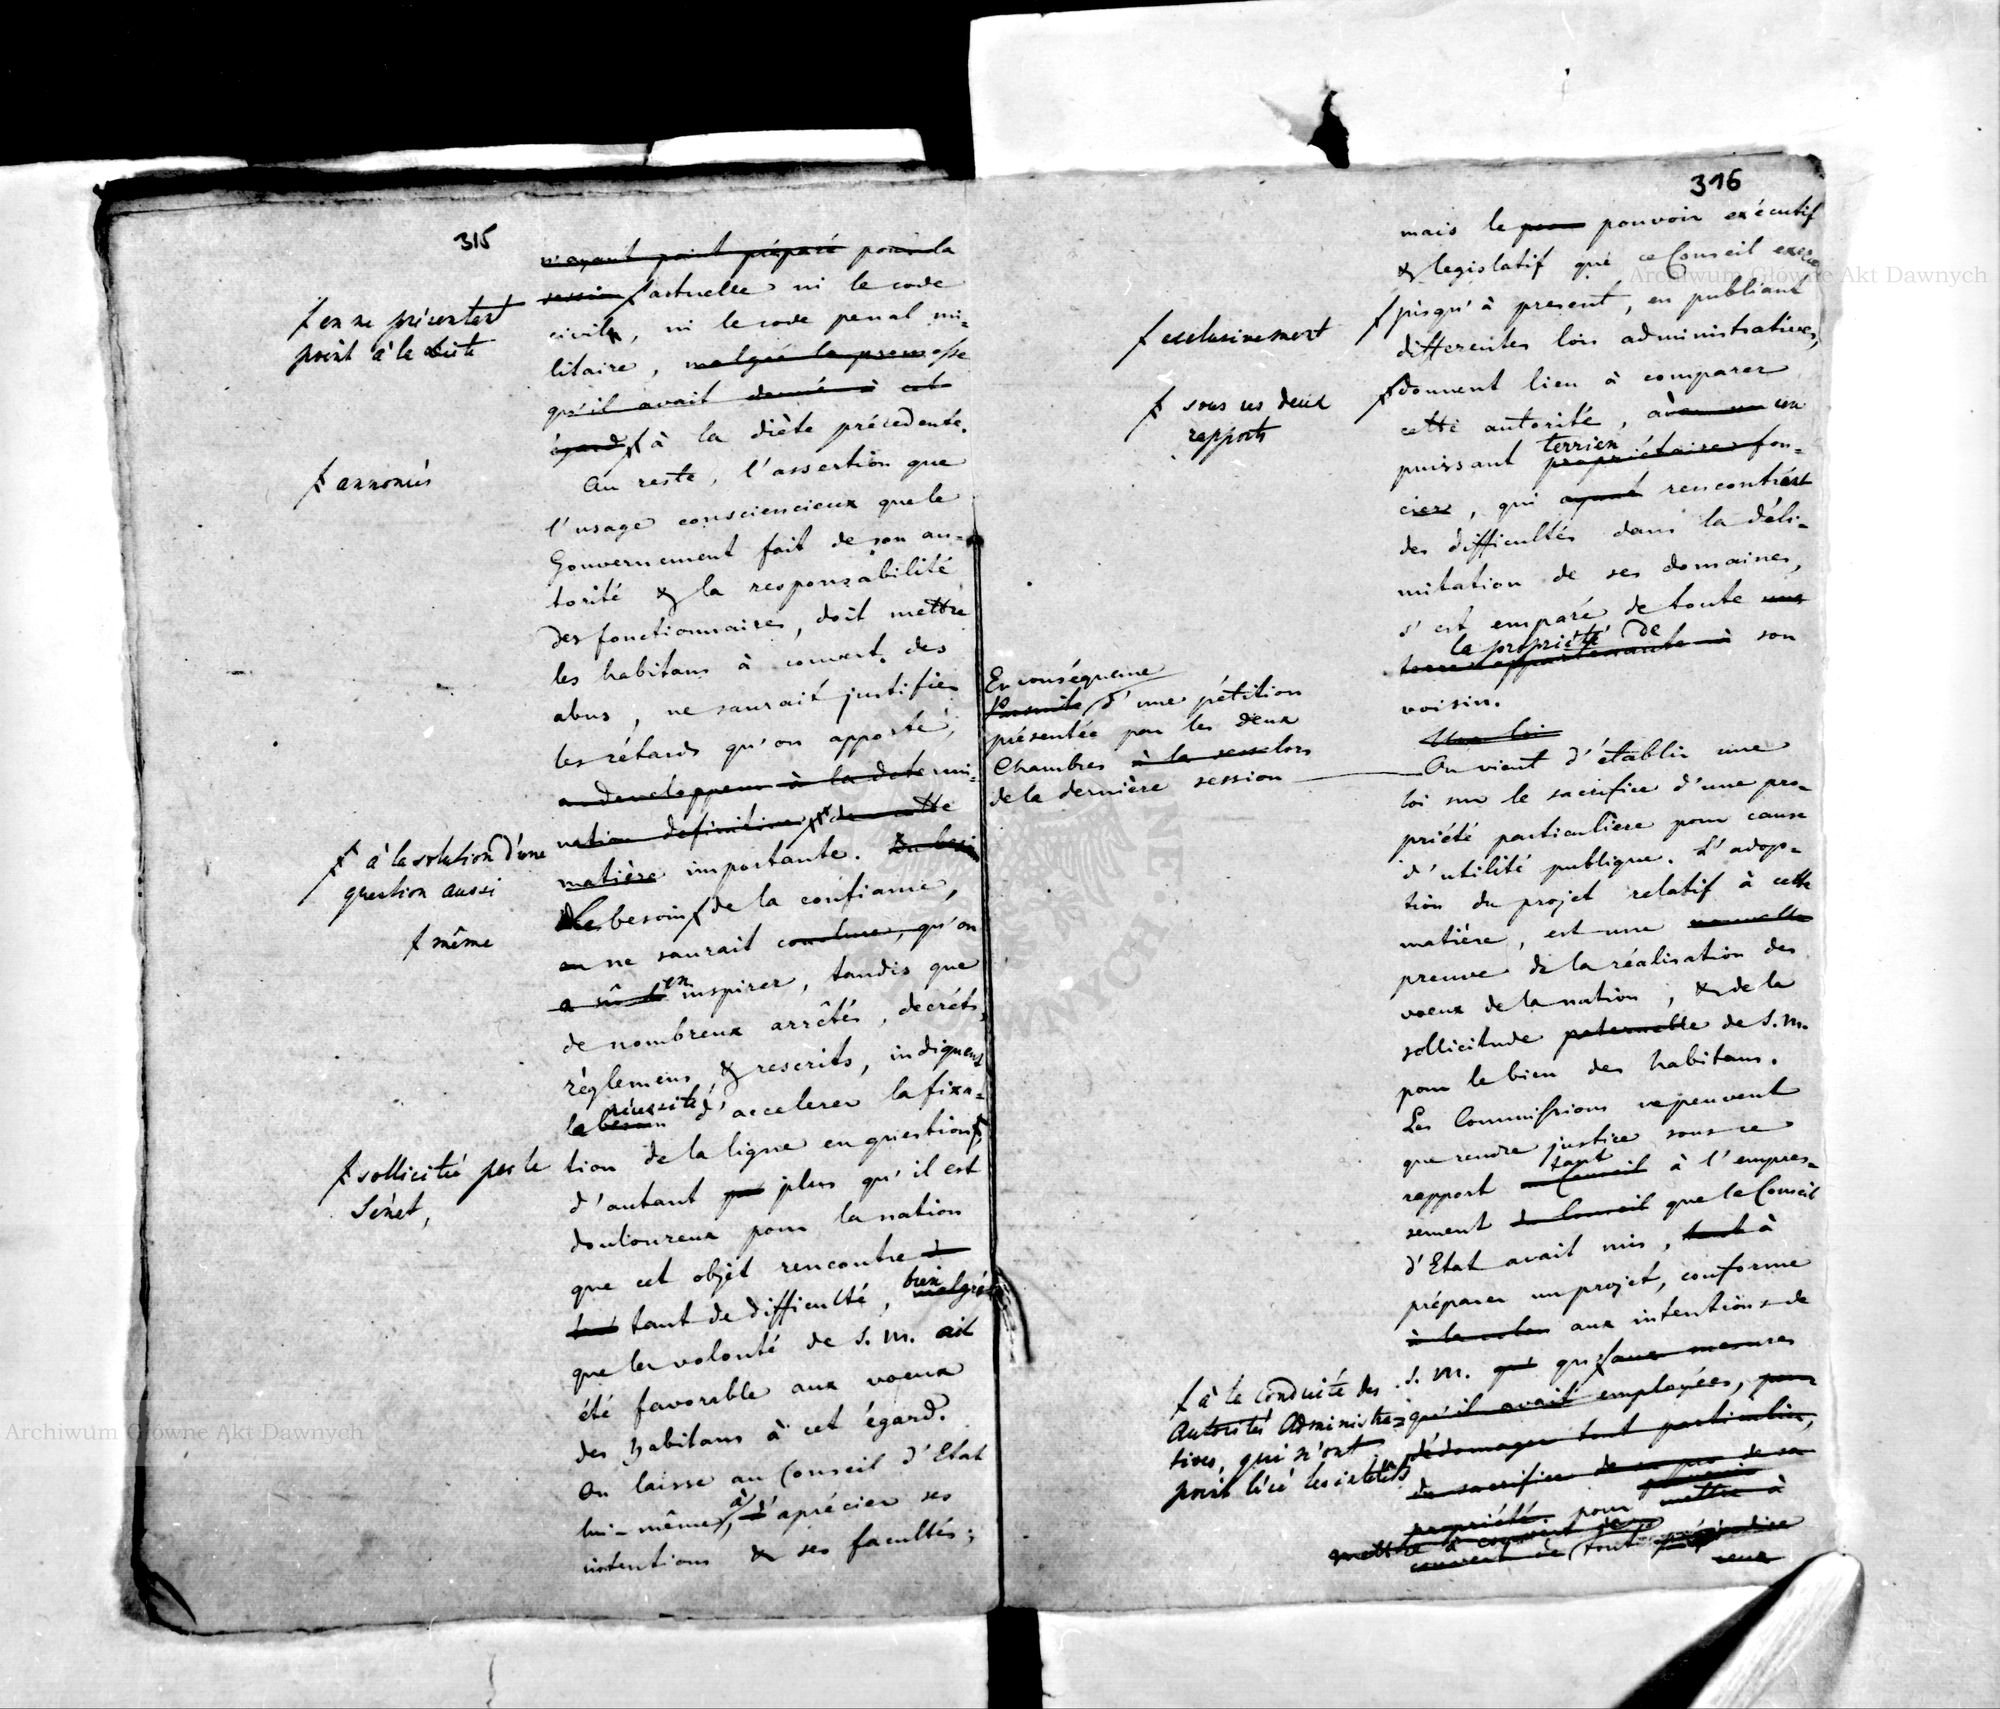 315
n'ayant point préparé pour la
session ƒ actuelle ni le code
civil, ni le code penal mi-
litaire, malgré la promesse
qu'il avait donné à cet
égard ƒ à la diète précédente.
Au reste, l'assertion que
l'usage consciencieux que le
Gouvernement fait de son au-
torité & la responsabilité
des fonctionnaires, doit mettre
les habitans à couvert des
abus, ne saurait justifier
les rétards qu'on apporte,
au developpem à la determi-
nation definitive de cette
matière importante. Du besoin
Le besoin ƒ de la confiance,
en ne saurait conclure, qu'on
a sû l' en inspirer, tandis que
de nombreux arrêtés, decréts,
règlemens, & rescrits, indiquent
la besoin nécessité d'accelerer la fixa-
tion de la ligne en question ƒ
d'autant que plus qu'il est
douloureux pour la nation
que cet objet rencontre
tant de difficulté, bien malgré
que la volonté de S. M. ait
été favorable aux voeux
des habitans à cet égard.
On laisse au Conseil d'Etat
lui-même, à d'aprécier ses
intentions & ses facultés;
ƒ en ne présentant
point à la diète
ƒ annoncés
ƒ à la solution d'une
question aussi
ƒ même
ƒ sollicitée par le
Sénat,
316
mais le pouvoir exécutif
& legislatif que ce Conseil exerce
ƒ jusqu'à present, en publiant
differentes lois administratives,
ƒ donnent lieu à comparer
cette autorité, à un
puissant terrien propriétaire fon-
cier, qui ayant rencontrant
des difficultés dans la déli-
mitation de ses domaines,
s'est emparé de toute une
la propriété de
terre appartenante à son
voisin.
Une loi
On vient d'établir une
loi sur le sacrifice d'une pro-
priété particulière pour cause
d'utilité publique. L'adop-
tion du projet relatif à cette
matière, est une nouvelle
preuve de la réalisation des
voeux de la nation, & de la
sollicitude paternelle de S. M.
pour le bien des habitans.
Les Commissions ne peuvent
que rendre justice sous ce
rapport tant à l'empres-
sement du Conseil que le Conseil
d'Etat avait mis, tant à
préparer un projet, conforme
aux intentions de
S. M. que qu' ƒ aux mesures
qu'il avait employées, pour
dédomager tout particulier,
du sacrifice de sa
propriété pour mettre à
mettre à couvert de
couvert de tout
ƒ exclusivement
ƒ sous ces deux
rapports
En conséquence
Par suite d'une pétition
présentée par les deux
Chambres à la session lors
de la dernière session
ƒ à la conduite des
Autorités Administra-
tives, qui n'ont
point lésé les intérêts